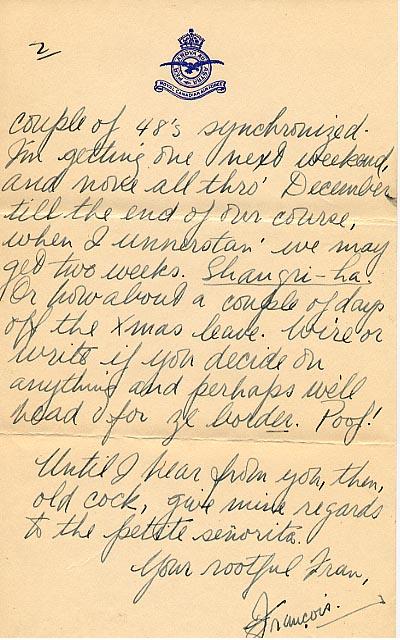 2
ROYAL CANADIAN AIR FORCE
couple of 48's synchronized.
I'm getting one next weekend,
and none all thro' December
till the end of our course,
when I unnerstan' we may
get two weeks. Shangri-ha.
Or how about a couple of days
off the Xmas leave. Wire or
write if you decide on
anything and perhaps we'll
head for ze border. Poof!
Until I hear from you, then,
old cock, give mine regards
to the petite señorita.
Your rootful Fran,
François.